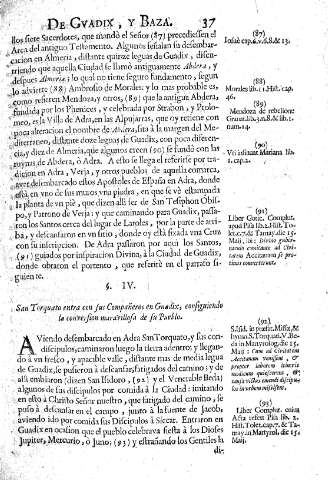 DE GVADIX, Y BAZA. 37
llos siete Sacerdotes, que mandò el Señor (87) precediessen el
Arca del antiguo Testamento. Algunos señalan su desembar-
cacion en Almeria, distante quinze leguas de Guadix, discu-
rriendo que aquella Ciudad se llamò antiguamente Abdera, y
despues Almeria; lo qual no tiene seguro fundamento, segun
lo advierte (88) Ambrosio de Morales: y lo mas probable es,
como refieren Mendoza, y otros, (89) que la antigua Abdera,
fundada por los Phenices, y celebrada por Strabon, y Ptolo-
meo, es la Villa de Adra, en las Alpujarras, que oy retiene con
poca alteracion el nombre de Abdera, sita à la margen del Me-
diterraneo, distante onze leguas de Guadix, con poca diferen-
cia, y diez de Almeria, que algunos creen (90) se fundò con las
ruynas de Abdera, ò Adra. A esto se llega el referirse por tra-
dicion en Adra, Verja, y otros pueblos de aquella comarca,
aver desembarcado ellos Apostoles de España en Adra, donde
està en vno de sus muros vna piedra, en que se vè estampada
la planta de vn piè, que dizen allì ser de San Tesiphon Obis-
po, y Patrono de Verja: y que caminando para Guadix, passa-
ron los Santos cerca del lugar de Laroles, por la parte de arri-
ba, y descansaron en vn sitio, donde oy està fixada vna Cruz
con su inscripcion. De Adra passaron por aqui los Santos,
(91) guiados por inspiracion Divina, à la Ciudad de Guadix,
donde obraron el portento, que referirè en el parrafo si-
guiente.
§. IV.
San Torquato entra con sus Compañeros en Guadix, consiguiendo
la conversion maravillosa de su Pueblo.
AViendo desembarcado en Adra San Torquato, y sus con-
discipulos, caminaron luego la tierra adentro; y llegan-
do à vn fresco, y apacible valle, distante mas de media legua
de Guadix, se pusieron à descansar, fatigados del camino: y de
allì embiaron (dizen San Isidoro, (92) y el Venerable Beda)
algunos de sus discipulos por comida à la Ciudad; imitando
en esto à Christo Señor nuestro, que fatigado del camino, se
puso à descansar en el campo, junto à la fuente de Jacob,
aviendo ido por comida sus Discipulos à Siccar. Entraron en
Guadix en ocasion que el pueblo celebrava fiesta à los Dioses
Jupiter, Mercurio, ò Juno: (93) y estrañando los Gentiles la
di-
(87)
Iosuè cap. 6. v. 6. 8. & 13.
(88)
Morales lib. 1. Hist. cap.
46.
(89)
Mendoza de rebelione
Granat. lib. 3. n. 8. & lib. 1.
num. 14.
(90)
Vti insinuat Mariana lib.
1. cap. 2.
(91)
Liber Gotic. Complut.
apud Pisa lib. 2. Hist. Tolet.
c. 7. & Tamay. die 15.
Maij, ibi: Divino guber-
naculo comitante ad Civi-
tatem Accitanam se pro-
tinus contulerunt.
(92)
(93)
Liber Complut. Gotic.
Asta refert Pisa lib. 2.
Hist. Tolet. c. 7. & Ta-
may. in Martyrol. die 15.
Maij.